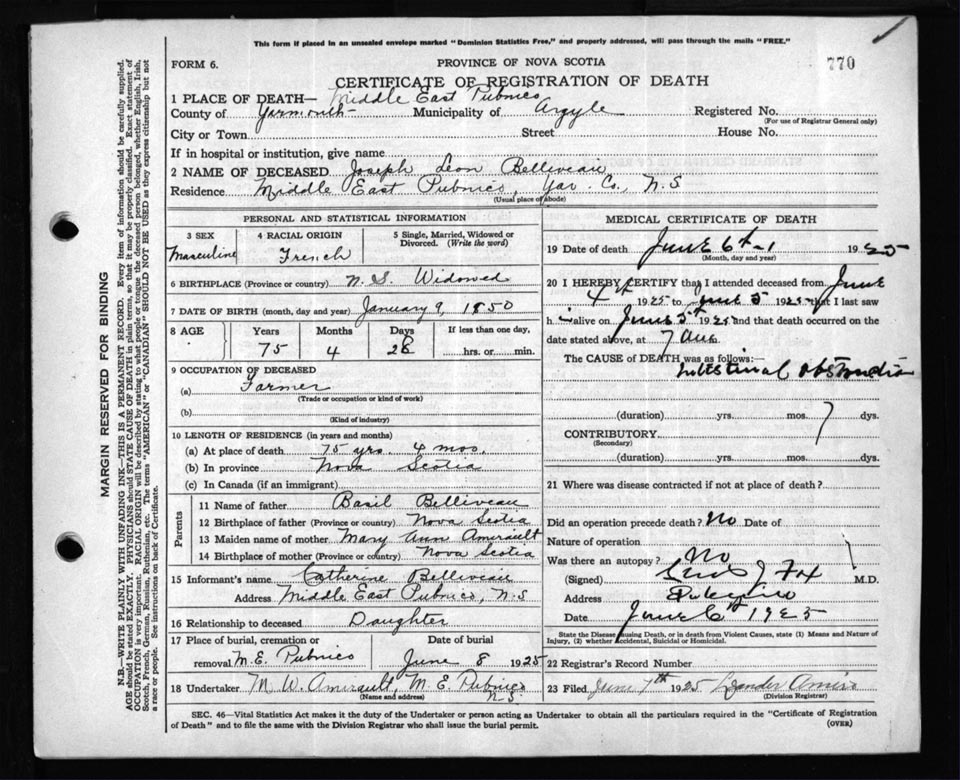 This form if placed in an unsealed envelope marked "Dominion Statistics Free," and properly addressed, will pass through the mails "FREE."
FORM 6.
PROVINCE OF NOVA SCOTIA
770
CERTIFICATE OF REGISTRATION OF DEATH
1 PLACE OF DEATH— Middle East Pubnico
County of Yarmouth Municipality of Argyle Registered No.
(For use of Registrar General only)
City or Town Street House No.
If in hospital or institution, give name
2 NAME OF DECEASED Joseph Leon Belliveau
Residence Middle East Pubnico, Yar. Co., N.S
(Usual place of abode)
PERSONAL AND STATISTICAL INFORMATION
3 SEX 4 RACIAL ORIGIN 5 Single, Married, Widowed or Divorced. (Write the word)
Masculine French
6 BIRTHPLACE (Province or country) N.S. Widowed
7 DATE OF BIRTH (month, day and year) January 9, 1850
8 AGE Years Months Days If less than one day,
75 4 28 hrs. or min.
9 OCCUPATION OF DECEASED
(a) Farmer
(Trade or occupation or kind of work)
(b)
(Kind of industry)
10 LENGTH OF RESIDENCE (in years and months)
(a) At place of death 75 yrs. 4 mos.
(b) In province Nova Scotia
(c) In Canada (if an immigrant)
Parents
11 Name of father Basil Belliveau
12 Birthplace of father (Province or country) Nova Scotia
13 Maiden name of mother Mary Ann Amirault
14 Birthplace of mother (Province or country) Nova Scotia
15 Informant's name Catherine Belliveau
Address Middle East Pubnico, N.S
16 Relationship to deceased Daughter
17 Place of burial, cremation or Date of burial
removal M.E. Pubnico June 8 1925
18 Undertaker M. W. Amirault, M. E. Pubnico
(Name and address) N.S.
MEDICAL CERTIFICATE OF DEATH
19 Date of death June 6th 1925
(Month, day and year)
20 I HEREBY CERTIFY that I attended deceased from June
4th 1925 to June 5 1925 that I last saw
h i alive on June 5th 1925 and that death occurred on
date stated above, at 7 am.
The CAUSE OF DEATH was as follows:
Intestinal obstruction
(duration) yrs. mos. 7 dys.
CONTRIBUTORY
(Secondary)
(duration) yrs. mos. dys.
21 Where was disease contracted if not at place of death?
Did an operation precede death? No Date of
Nature of operation
Was there an autopsy? No
(Signed) J Fox M.D.
Address Pubnico
Date June 6th 1925
State the Disease Causing Death, or in death from Violent Causes, state (1) Means and Nature of
Injury, (2) whether Accidental, Suicidal or Homicidal.
22 Registrar's Record Number
23 Filed June 7th 1925 Leander Amiro
(Division Registrar)
SEC. 46—Vital Statistics Act makes it the duty of the Undertaker or person acting as Undertaker to obtain all the particulars required in the "Certificate of Registration
of Death" and to file the same with the Division Registrar who shall issue the burial permit. (OVER)
MARGIN RESERVED FOR BINDING
N.B.—WRITE PLAINLY WITH UNFADING INK—THIS IS A PERMANENT RECORD. Every item of information should be carefully supplied.
AGE should be stated EXACTLY. PHYSICIANS should STATE CAUSE OF DEATH in plain terms, so that it may be properly classified. Exact statement of
OCCUPATION is very important. RACIAL ORIGIN will be described by stating to what people or tongue the deceased person belonged, whether English, Irish,
Scotch, French, German, Russian, Ruthenian, etc. The terms "AMERICAN" or "CANADIAN" SHOULD NOT BE USED as they express citizenship but not
a race or people. See instructions on back of Certificate.